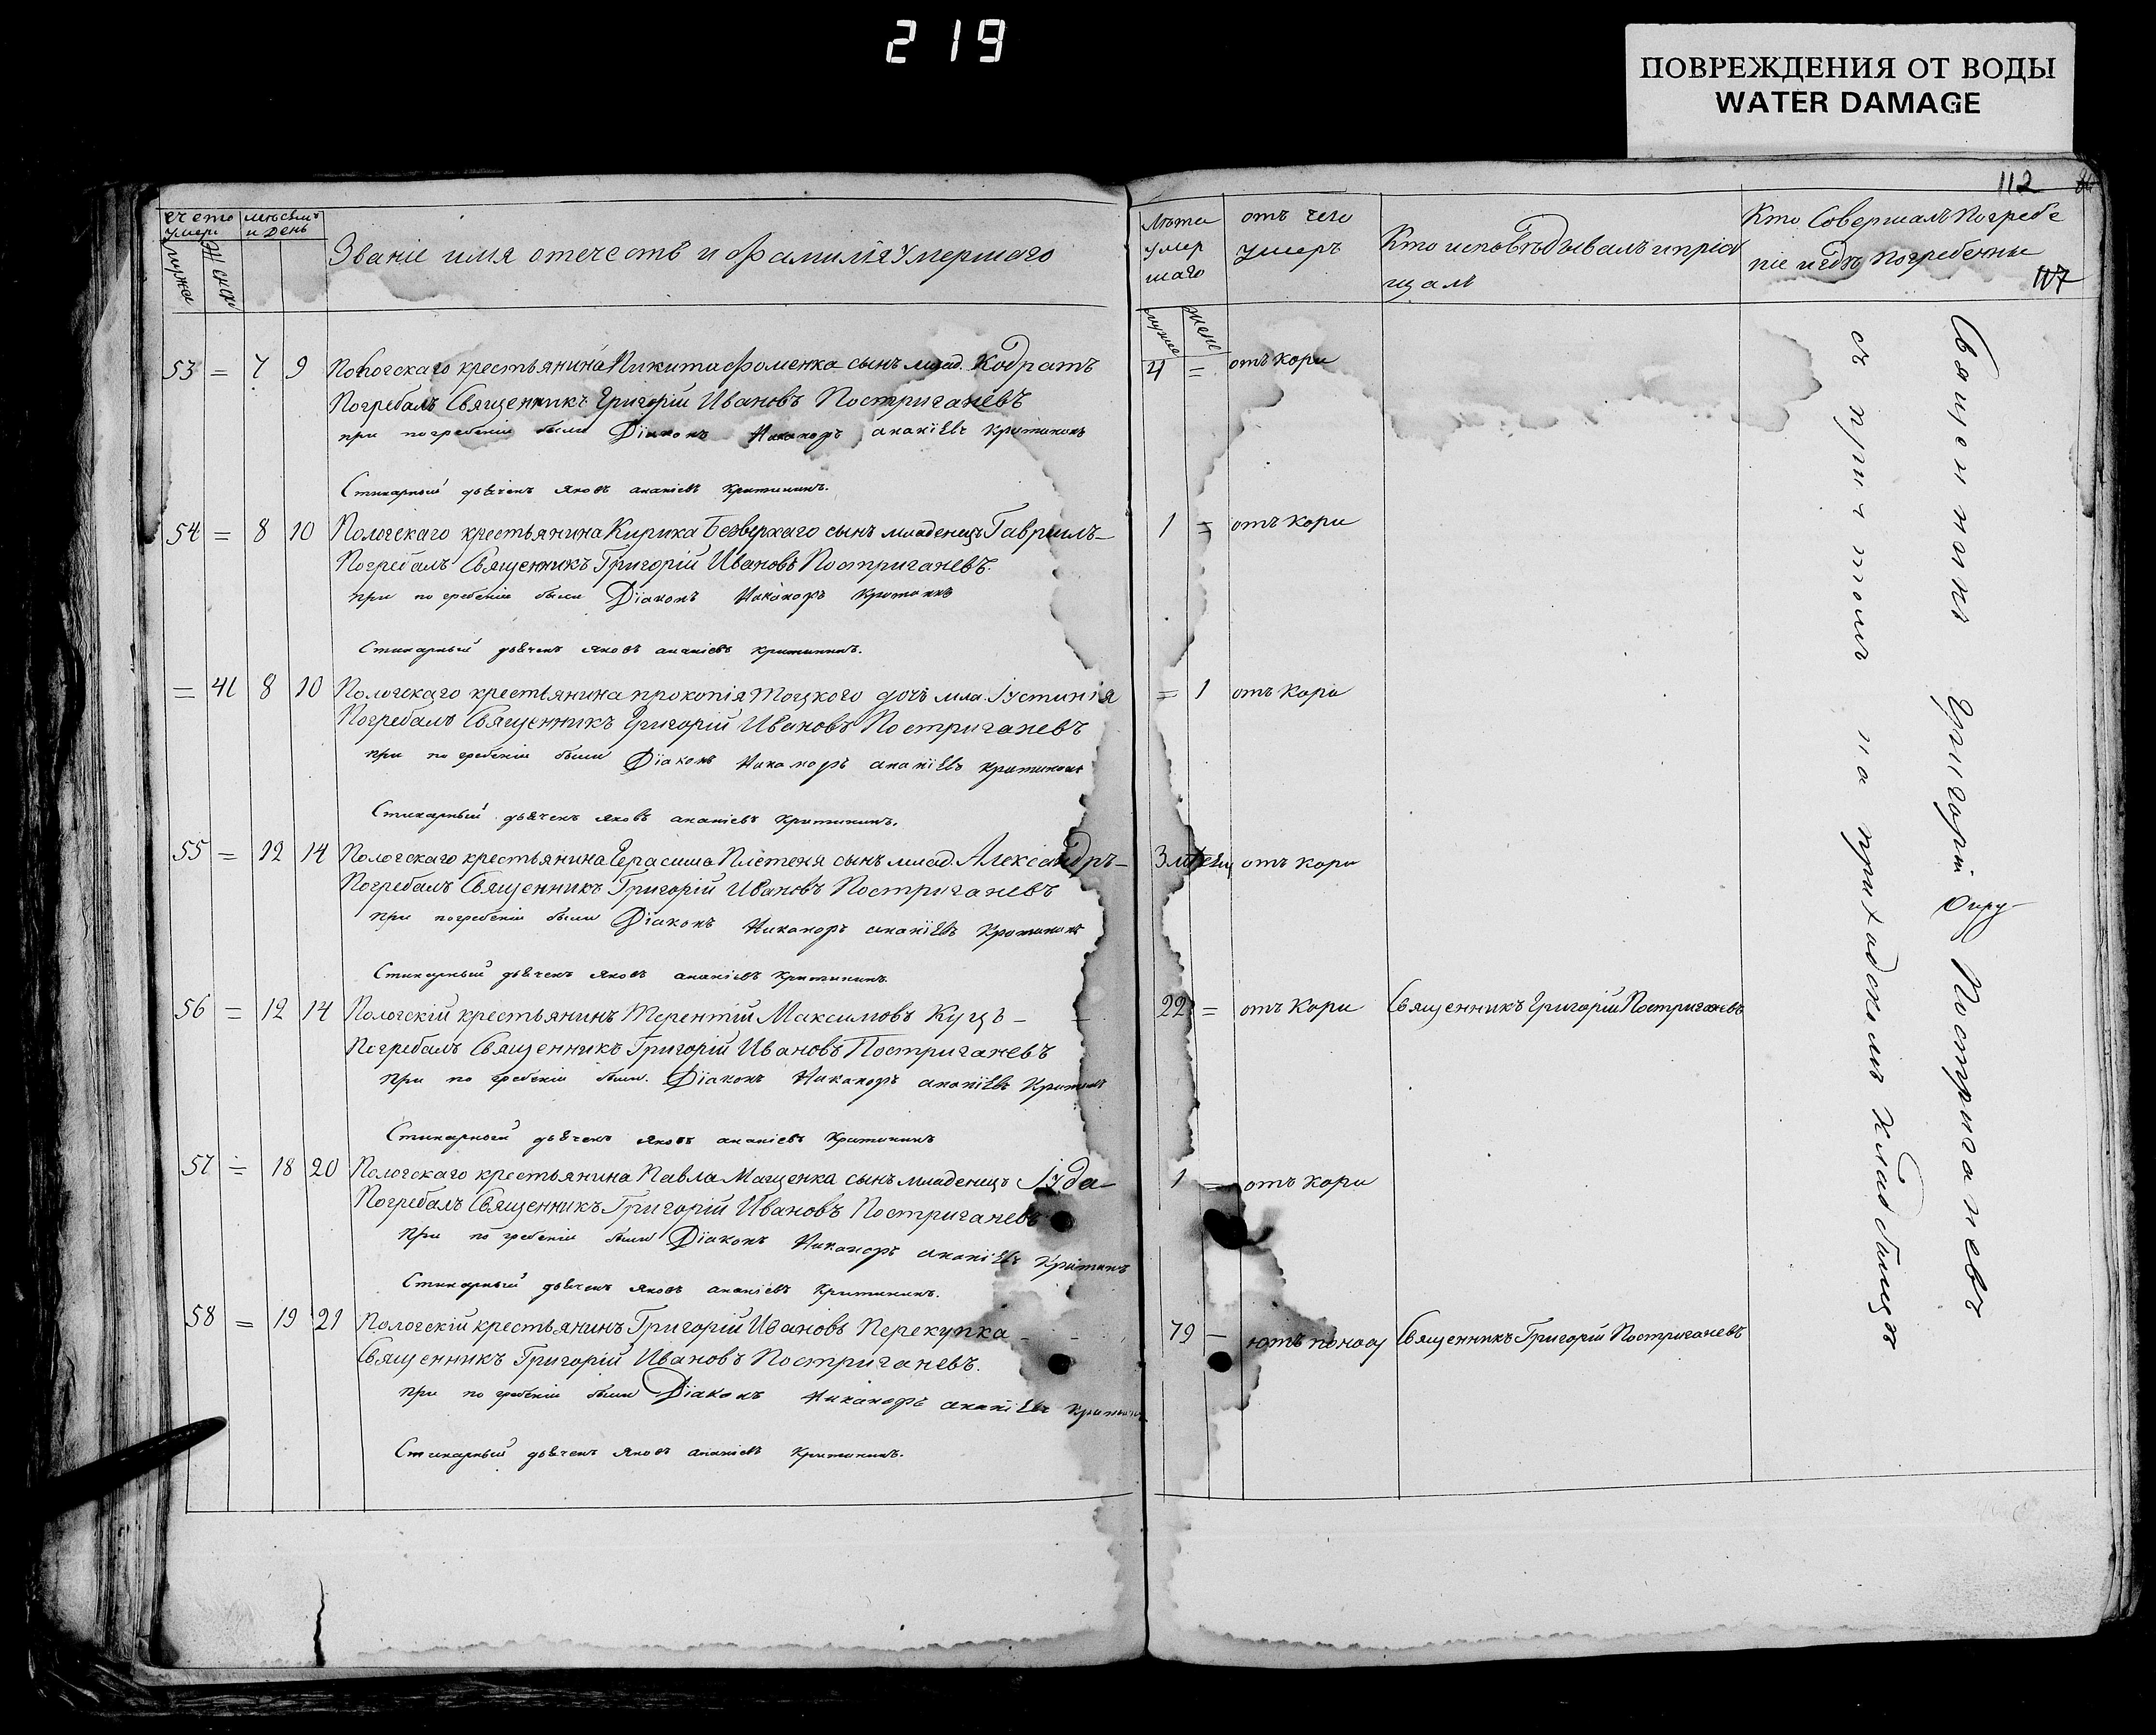 219
ПОВРЕЖДЕНИЯ ОТ ВОДЫ
WATER DAMAGE
112
117
Счетъ умер
мужес
Женск
мѣсяцъ и День
Званіе имя отечество и Фамилія Умершаго
53 = 7 9 Пологскаго крестьянина Никита Фоменка сынъ млад. Кодратъ
Погребалъ Священникъ Григорій Ивановъ Постриганевъ
при погребеніи были Діаконъ Никаноръ ананіевъ
Стихарный дьячекъ яковъ ананіевъ
54 = 8 10 Пологскаго крестьянина Кирика Безверхаго сынъ младенецъ Гавріилъ
Погребалъ Священникъ Григорій Ивановъ Постриганевъ.
при погребеніи были Діаконъ Никаноръ
Стихарный дьячекъ яковъ ананіевъ
= 41 8 10 Пологскаго крестьянина прокопія Тоцкого дочь мла. Іустинія
Погребалъ Священникъ Григорій Ивановъ Постриганевъ
при погребеніи были Діаконъ Никаноръ ананіевъ
Стихарный дьячекъ яковъ ананіевъ
55 = 12 14 Пологскаго крестьянина Герасима Плетеня сынъ млад. Александръ
Погребалъ Священникъ Григорій Ивановъ Постриганевъ
при погребеніи были Діаконъ Никаноръ ананіевъ
Стихарный дьячекъ яковъ ананіевъ
56 = 12 14 Пологскій крестьянинъ Терентій Максимовъ Куцъ
Погребалъ Священникъ Григорій Ивановъ Постриганевъ
при погребеніи были. Діаконъ Никаноръ ананіевъ
Стихарный дьячекъ яковъ ананіевъ
57 = 18 20 Пологскаго крестьянина Павла Мащенка сынъ младенецъ Іуда
Погребалъ Священникъ Григорій Ивановъ Постриганевъ
при погребеніи были Діаконъ Никаноръ ананіевъ
Стихарный дьячекъ яковъ ананіевъ
58 = 19 21 Пологскій крестьянинъ Григорій Ивановъ Перекупка
Священникъ Григорій Ивановъ Постриганевъ.
при погребеніи были Діаконъ Никаноръ ананіевъ
Стихарный дьячекъ яковъ ананіевъ
Лѣта умершаго
мужес
жене
отъ чего умеръ
Кто исповѣдывалъ и пріобщалъ
Кто Совершалъ Погребеніе и гдѣ Погребенны
4 = отъ Кори
1 = отъ Кори
= 1 отъ Кори
отъ кори
22 = отъ Кори Священникъ Григорій Постриганевъ
1 = отъ кори
79 Священникъ Григорій Постриганевъ
Священникъ Григорій Постриганевъ
съ причтомъ на приходскомъ Кладбищѣ